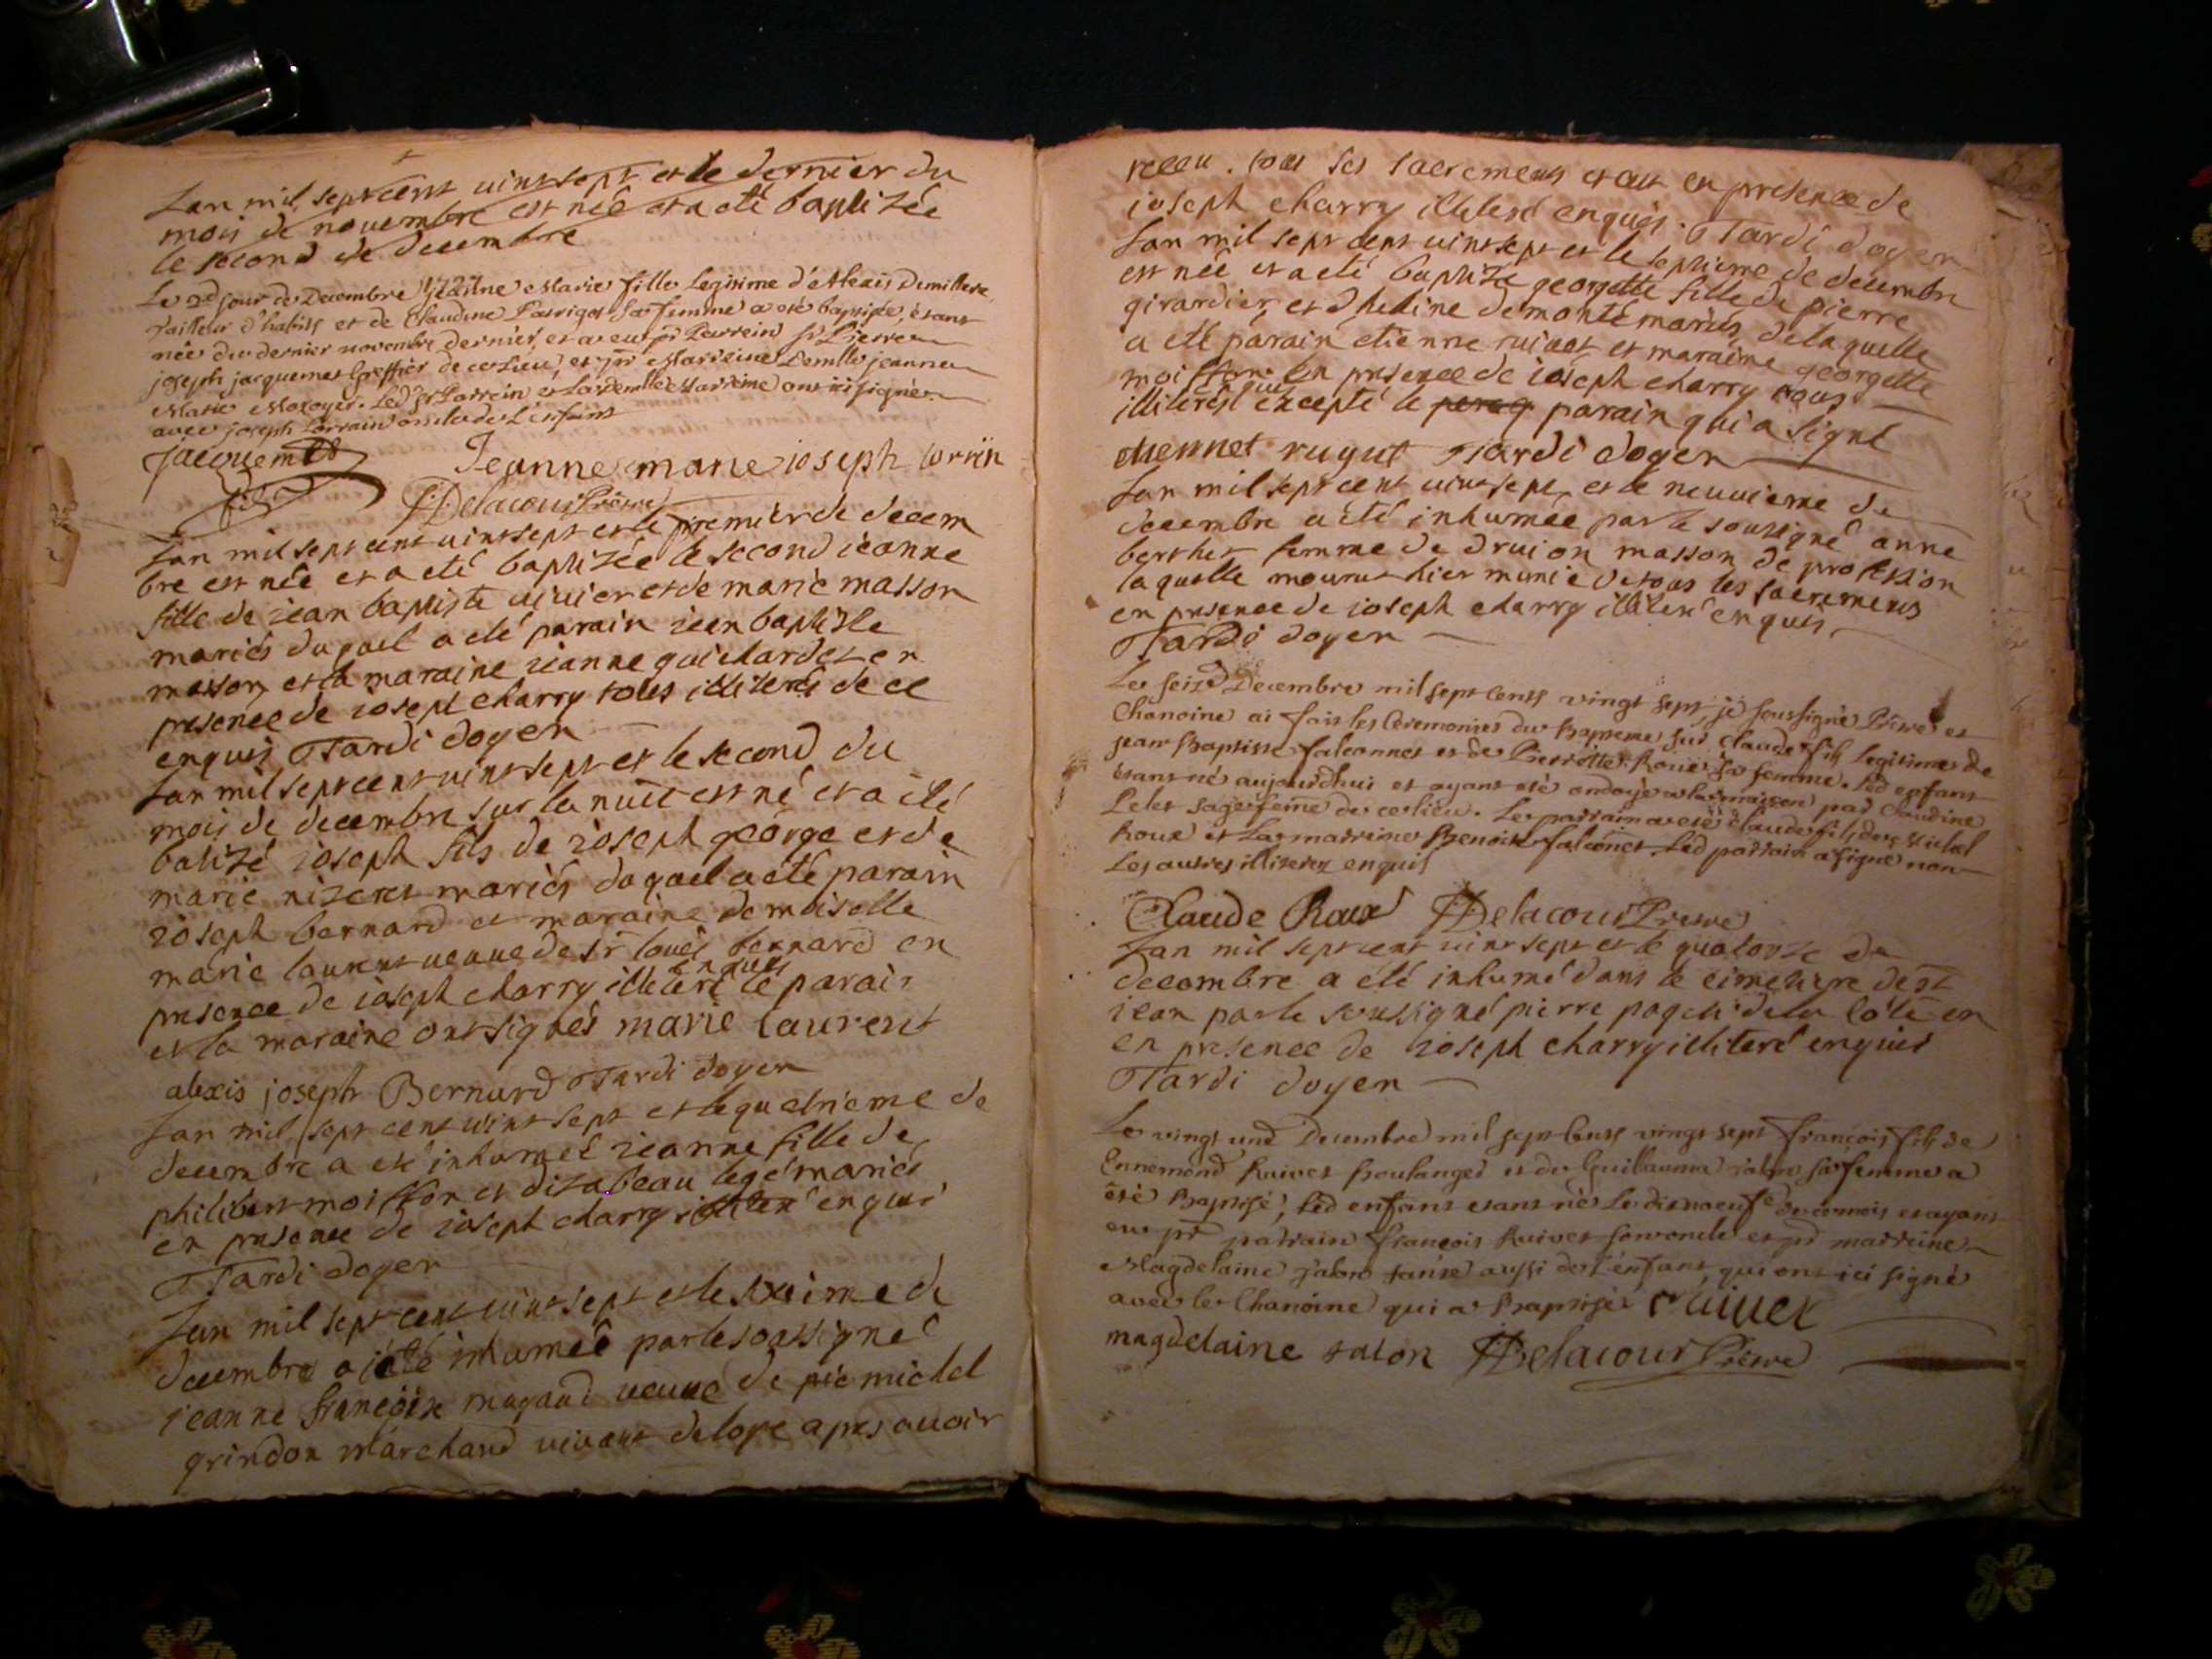 Lan mil septcent vint sept et le dernier du
mois de novembre est née et a eté baptizée
le second de decembre
Le 2d jour de Decembre 1727 jeanne Marie fille Legitime d'Alexis Demillere
Tailleur d'habits et de Claudine sa femme a été baptisée, étant
née du dernier novembre dernier, et a eu pr Parrein Sr Pierre
joseph jacquemet Greffier de ce Lieu, et pr Marreine Demlle jeanne
Marie . Led Sr Parrein et Lad demlle Marreine ont ici signé
avec joseph Lorrain oncle de L'enfant
Jacquemet Jeanne marie joseph lorrin
JDelacour Prêtre
Lan mil sept cent vint sept et le premier de decem
bre est née et a eté baptizée le second ieanne
fille de iean baptiste vivier et de marie masson
mariés duquel a eté parain iean baptiste
masson et la maraine ieanne guichardet en
presence de ioseph charry tous illiterés de ce
enquis Tardi doyen
Lan mil sept cent vint sept et le second du
mois de decembre sur la nuit est né et a eté
batizé ioseph fils de ioseph george et de
marie nizeret mariés duquel a eté parain
ioseph bernard et maraine demoiselle
marie laurent veuve de sr louis bernard en
presence de ioseph charry illiteré enquis le parain
et la maraine ont signés marie laurent
alexis joseph Bernard Tardi doyen
Lan mil sept cent vint sept et le quatrieme de
decembre a eté inhumée ieanne fille de
philibert moisson et disabeau legé mariés
en presence de ioseph charry illiteré enquis
Tardi doyen
Lan mil sept cent vint sept et le sixieme de
decembre a eté inhumée par le soussigné
jeanne françoise magaud veuve de michel
grindon marchand vivant de lope apres avoir
receu tous ses sacrements et cest en presence de
ioseph charry illiteré enquis. Tardi doyen
Lan mil sept cent vint sept et le septieme de decembre
est née et a eté baptizée georgette fille de pierre
girardier et dheline demonté mariés, de laquelle
a eté parain etienne ruivet et maraine georgette
en presence de ioseph charry tous
illiterés enquis excepté le parain qui a signé
etiennet Tardi doyen
Lan mil sept cent vint sept et le neuvieme de
decembre a eté inhumée par le soussigné anne
berthet femme de druion masson de profession
laquelle mourut hier munie de tous les sacrements
en presence de ioseph charry illiteré enquis
Tardi doyen
Le seize Decembre mil sept Cents vingt sept, je soussigné Prêtre et
Chanoine ai fait les Ceremonies du Bapteme sur Claude fils legitime de
jean Baptiste falconnet et de Pierrette Roux sa femme. Led enfant
étant né aujourdhui et ayant eté ondoyé a la maison par Claudine
Lelet sage feme de ce lieu. Le parrain a eté Claude fils de Michel
Roux et La marreine Benoite falconet. Led parrain a signé non
Les autres illiterez enquis
Claude Roux JDelacour Prêtre
Lan mil sept cent vint sept et le quatorze de
decembre a eté inhumé dans le cimetiere de st
iean par le soussigné pierre paquet de la coté en
en presence de ioseph charry illiteré enquis
Tardi doyen
Le vingt un Decembre mil sept Cents vingt sept françois fils de
Ennemond Ruivet Boulanger et de Guillauma sa femme a
été Baptisé, led enfant etant né Le dix neuf de ce mois et ayant
eu pr parrain françois Ruivet son oncle et pr marreine
Magdelaine tante aussi de l'enfant qui ont ici signé
avec le Chanoine qui a Baptisé ruivet
magdelaine JDelacour Prêtre